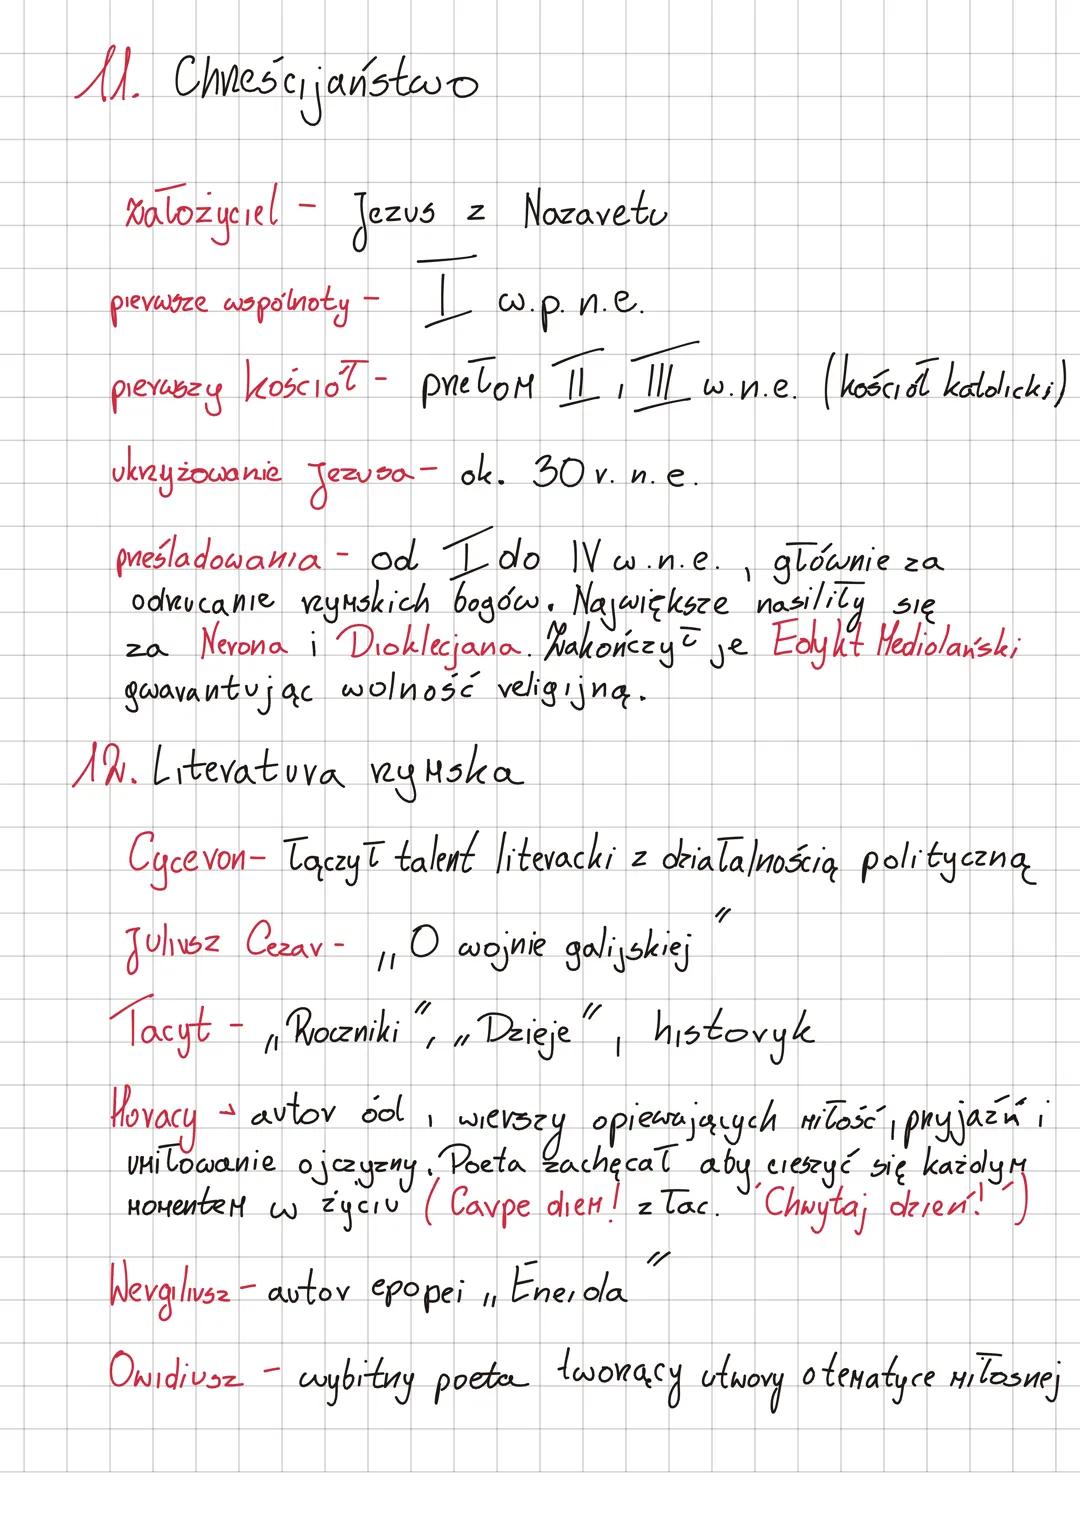 11. Chrześcijaństwo
założyciel - Jezus z Nazaretu
pierwsze wspólnoty - I w.p.n.e.
pierwszy kościół - przełom II i III w.n.e. (kościół katolicki)
ukrzyżowanie Jezusa - ok. 30 r. n. e.
prześladowania - od I do IV w.n.e., głównie za
odrzucanie rzymskich bogów. Największe nasiliły się
za Nerona i Dioklecjana. Zakończył je Edykt Mediolański
gwarantując wolność religijną.
12. Literatura rzymska
Cyceron - łączył talent literacki z działalnością polityczną
Juliusz Cezar - „O wojnie galijskiej"
Tacyt - „Roczniki", „Dzieje", historyk
Horacy → autor ód, wierszy opiewających miłość, przyjaźń i
umiłowanie ojczyzny. Poeta zachęcał aby cieszyć się każdym
momentem w życiu (Carpe diem! z łac. "Chwytaj dzień!")
Wergiliusz - autor epopei „Eneida"
Owidiusz - wybitny poeta tworzący utwory o tematyce miłosnej